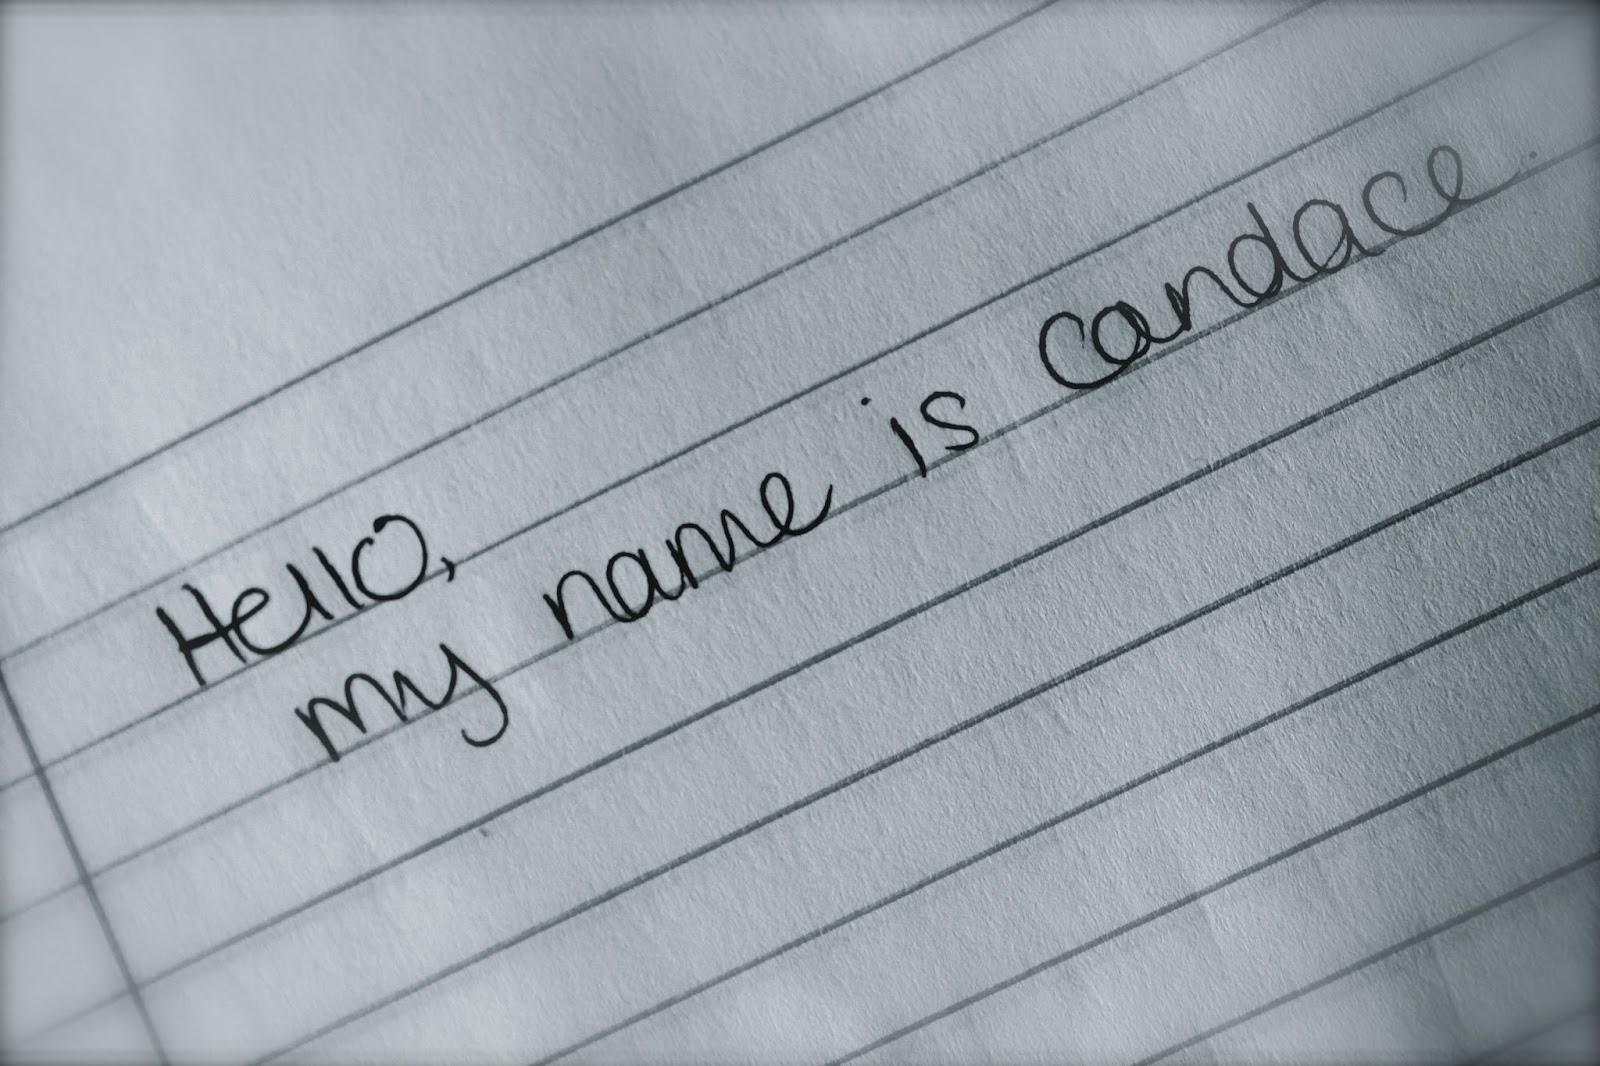 Hello,
my name is candace.